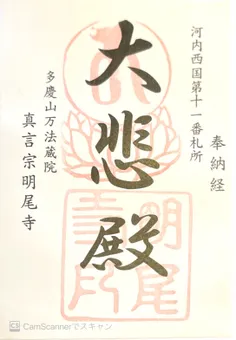 奉納経
河内西国第十一番札所
大悲殿
多慶山万法蔵院
真言宗明尾寺
明尾寺印
CamScannerでスキャン